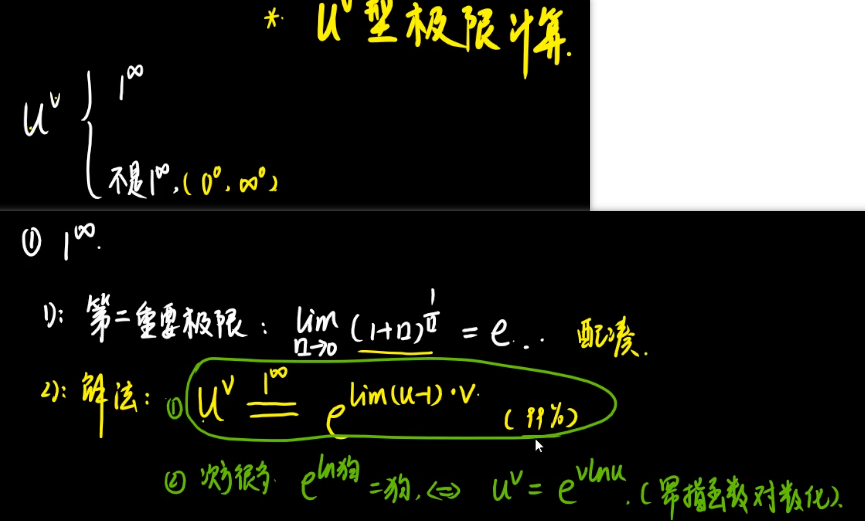 * u^v型极限计算.
u^v { 1^∞
不是1^∞, (0^0, ∞^0)
① 1^∞.
1): 第二重要极限: lim_{□→0} (1+□)^{1/□} = e... 配凑.
2): 解法: ① u^v =^{1^∞} e^{lim(u-1)·v.} (99%)
② 次方很多 e^{ln狗} = 狗, <=> u^v = e^{vlnu}. (幂指函数对数化).